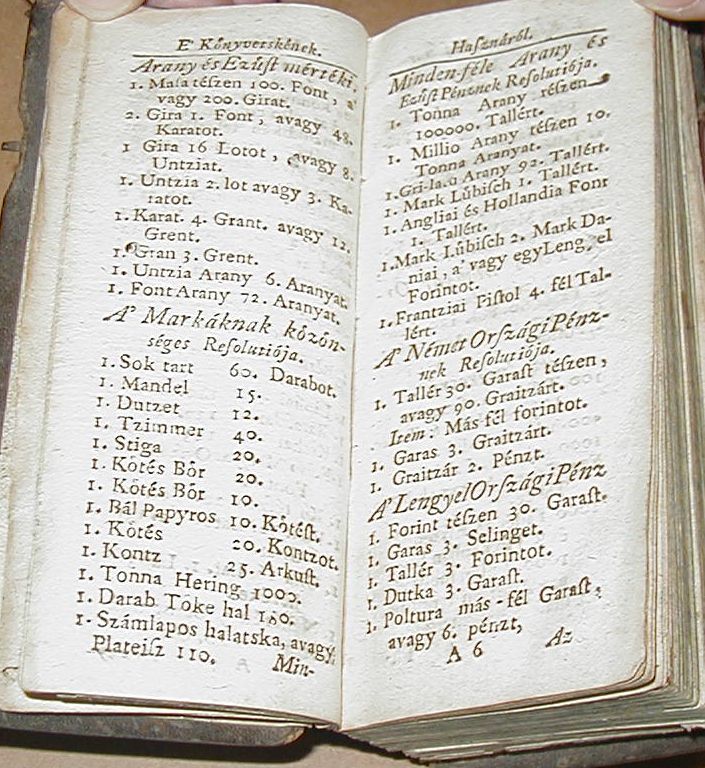 E' Kőnyvetskének.
Arany és Ezűſt mértéki.
1. Maſa téſzen 100. Font, a'
vagy 200. Girat.
2. Gira 1. Font, avagy 48.
Karatot.
1 Gira 16 Lotot, avagy 8.
Untziat.
1. Untzia 2. lot avagy 3. Ka-
ratot.
1. Karat. 4. Grant. avagy 12.
Grent.
1. Gran 3. Grent.
1. Untzia Arany 6. Aranyat.
1. Font Arany 72. Aranyat.
A' Markáknak kőzőn-
séges Reſolutiója.
1. Sok tart 60. Darabot.
1. Mandel 15.
1. Dutzet 12.
1. Tzimmer 40.
1. Stiga 20.
1. Kőtés Bőr 20.
1. Kőtés Bőr 10.
1. Bál Papyros 10. Kőtéſt.
1. Kőtés 20. Kontzot.
1. Kontz 25. Arkuſt.
1. Tonna Hering 1000.
1. Darab Tőke hal 180.
1. Számlapos halatska, avagy
Plateiſz 110.
Min-
Hasznáról.
Minden-féle Arany és
Ezűſt Pénznek Reſolutiója.
1. Tonna Arany téſzen
100000. Tallért.
1. Millio Arany téſzen 10.
Tonna Aranyat.
1. Arany 92. Tallért.
1. Mark Lűbiſch 1. Tallért.
1. Angliai és Hollandia Font
1. Tallért.
1. Mark Lűbiſch 2. Mark Da-
niai, a' vagy egy Leng. el
Forintot.
1. Frantziai Piſtol 4. fél Tal-
lért.
A' Német Orſzági Pénz-
nek Reſolutiója.
1. Tallér 30. Garaſt téſzen,
avagy 90. Graitzárt.
Item: Más fél forintot.
1. Garas 3. Graitzárt.
1. Graitzár 2. Pénzt.
A' Lengyel Orſzági Pénz
1. Forint téſzen 30. Garaſt.
1. Garas 3. Selinget.
1. Tallér 3. Forintot.
1. Dutka 3. Garaſt.
1. Poltura más-fél Garaſt,
avagy 6. pénzt,
A 6 Az